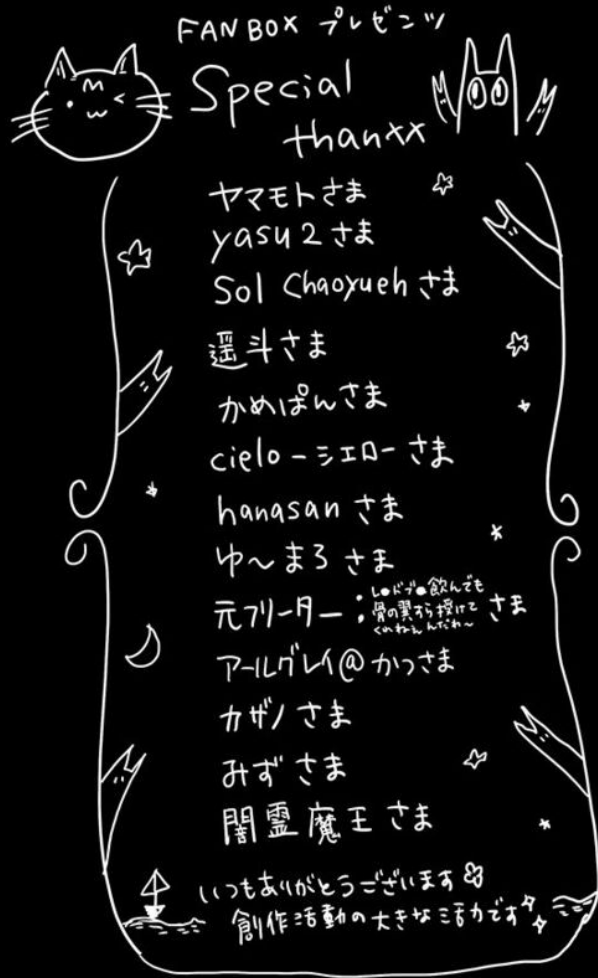 FANBOX プレゼンツ
Special
thanxx
ヤマモトさま
yasu2さま
Sol Chaoyuehさま
遥斗さま
かめぱんさま
cielo-シエローさま
hanasanさま
ゆ〜まろさま
元フリーター;L●ドブ●飲んでも骨の翼すら授けてくれねぇんだわ〜さま
アールグレイ@かつさま
カザノさま
みずさま
闇霊魔王さま
いつもありがとうございます
創作活動の大きな活力です